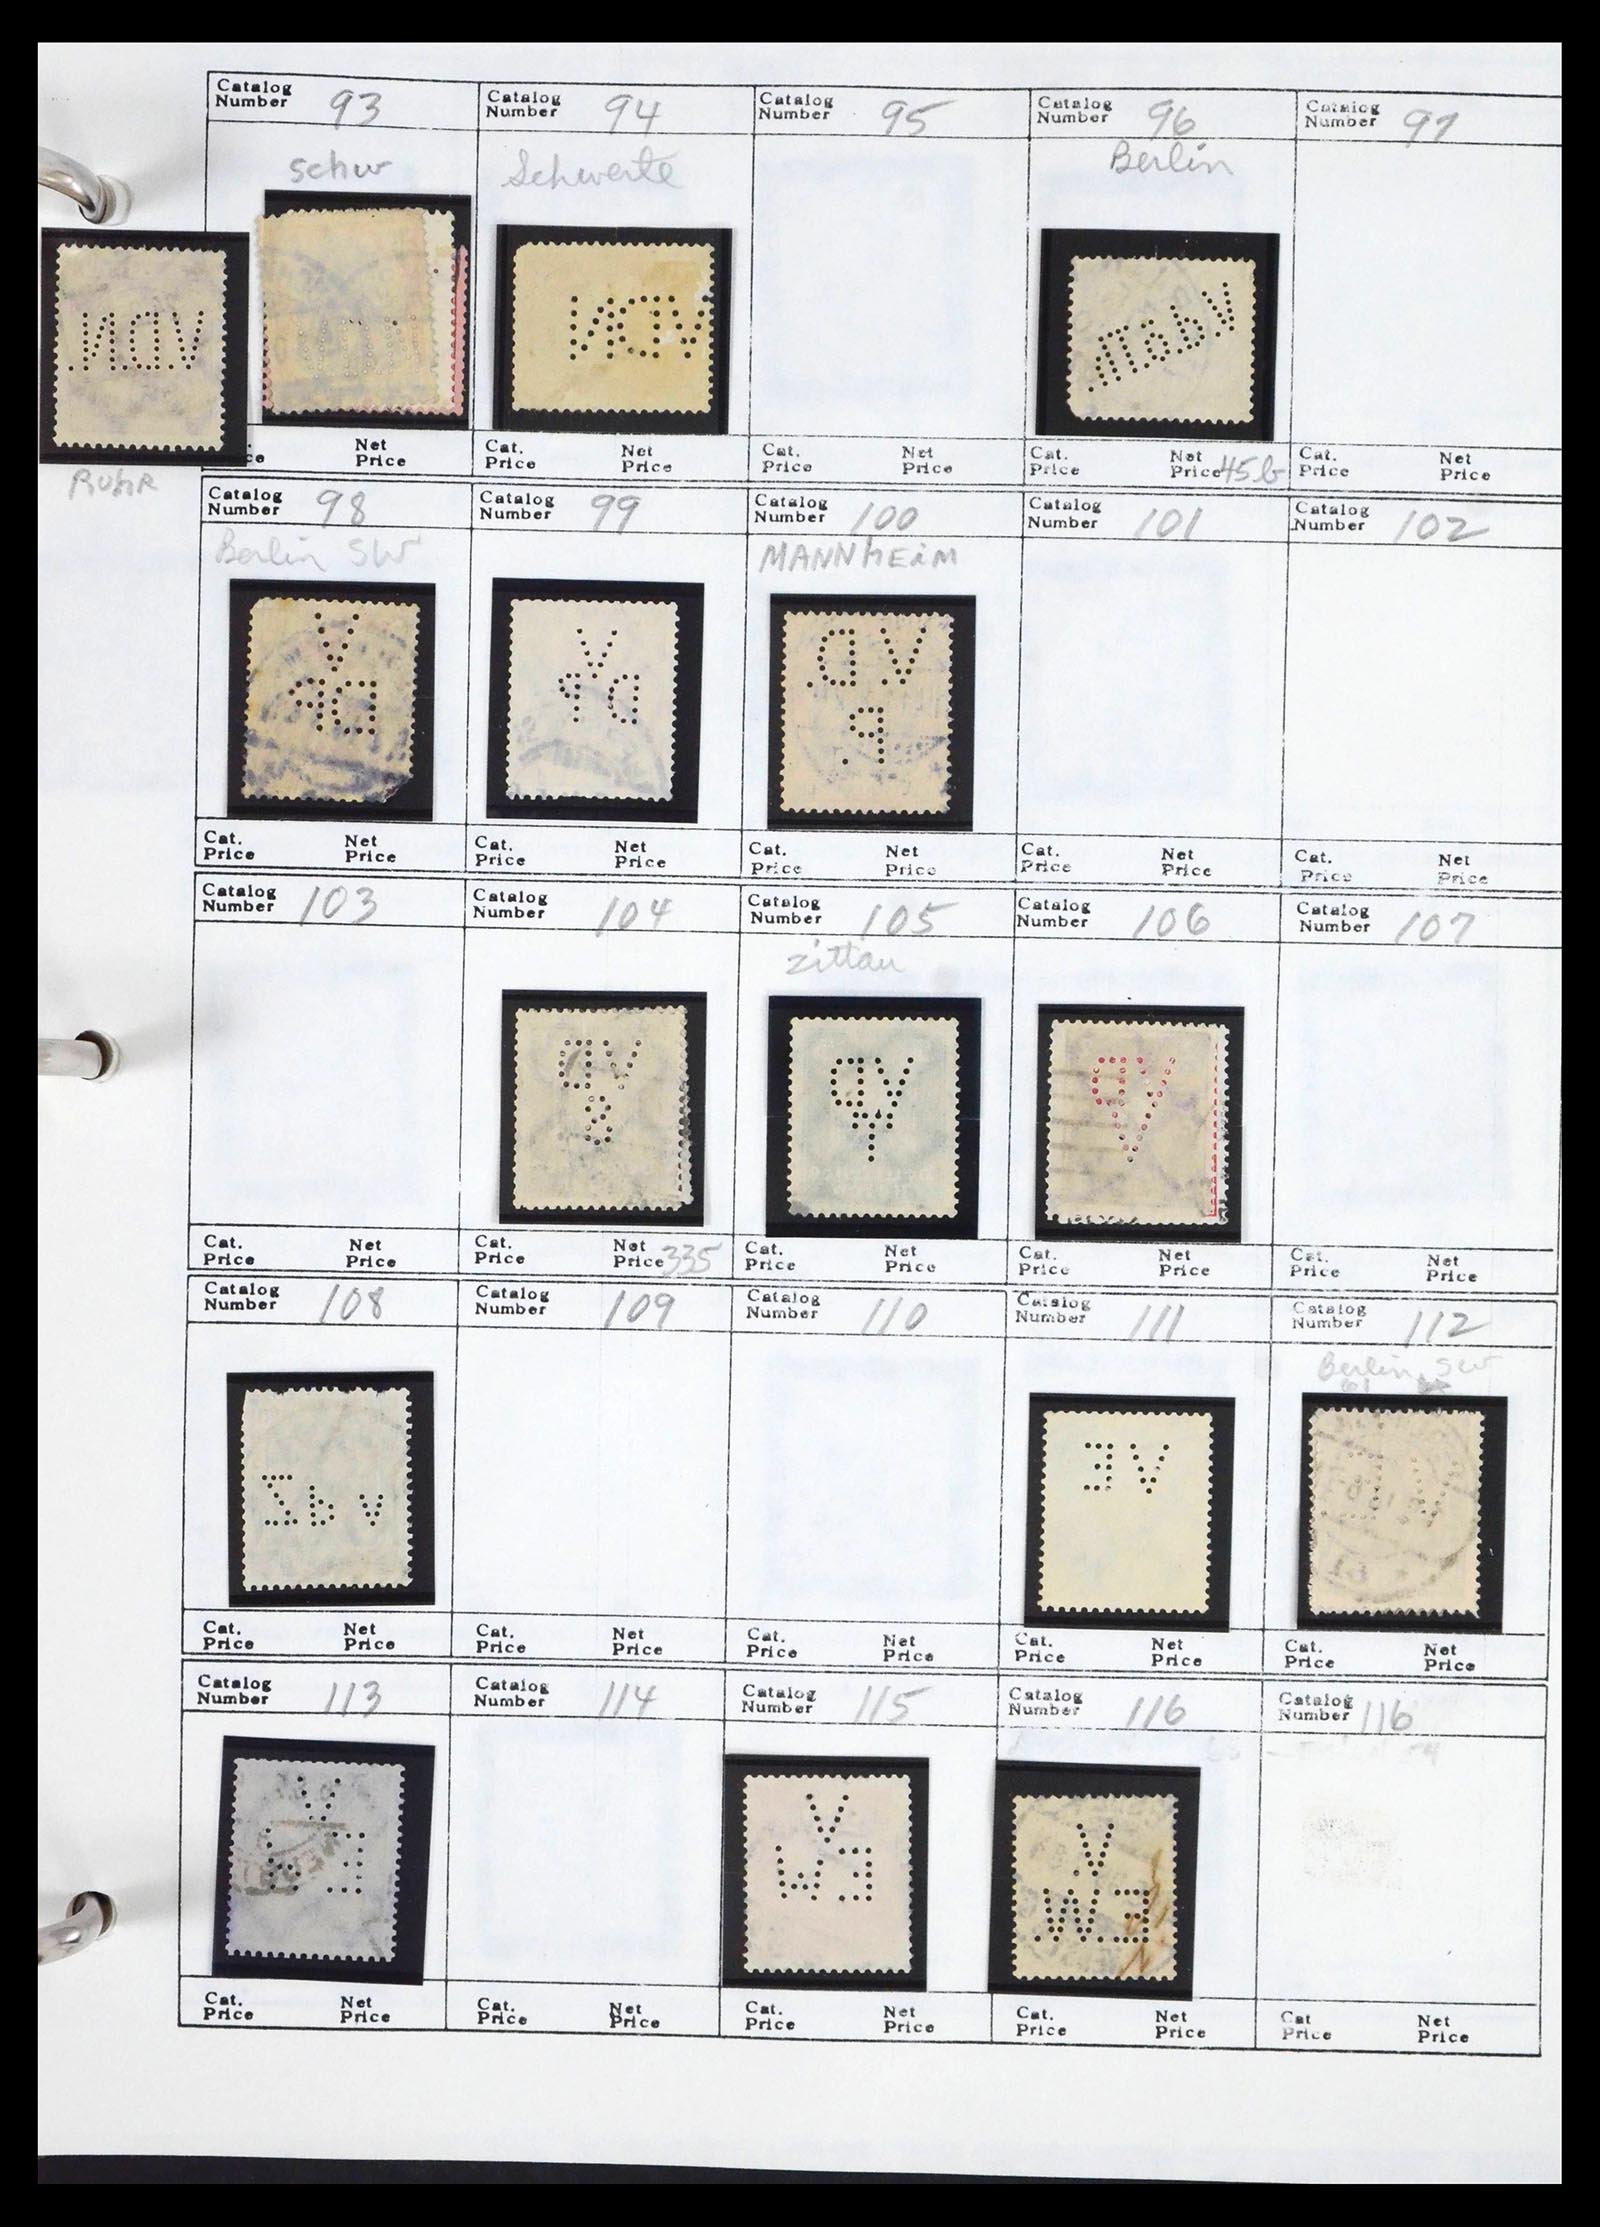 Catalog Number 93
Catalog Number 94
Catalog Number 95
Catalog Number 96
Catalog Number 97
schw
Schwerte
Berlin
Price
Net Price
Cat. Price
Net Price
Cat. Price
Net Price
Cat. Price
Net Price 45b
Cat. Price
Net Price
RUHR
Catalog Number 98
Catalog Number 99
Catalog Number 100
Catalog Number 101
Catalog Number 102
Berlin SW
MANNhEiM
Cat. Price
Net Price
Cat. Price
Net Price
Cat. Price
Net Price
Cat. Price
Net Price
Cat. Price
Net Price
Catalog Number 103
Catalog Number 104
Catalog Number 105
Catalog Number 106
Catalog Number 107
Zittau
Cat. Price
Net Price
Cat. Price
Net Price 335
Cat. Price
Net Price
Cat. Price
Net Price
Cat. Price
Net Price
Catalog Number 108
Catalog Number 109
Catalog Number 110
Catalog Number 111
Catalog Number 112
Berlin SW
Cat. Price
Net Price
Cat. Price
Net Price
Cat. Price
Net Price
Cat. Price
Net Price
Cat. Price
Net Price
Catalog Number 113
Catalog Number 114
Catalog Number 115
Catalog Number 116
Catalog Number 116
Cat. Price
Net Price
Cat. Price
Net Price
Cat. Price
Net Price
Cat. Price
Net Price
Cat Price
Net Price